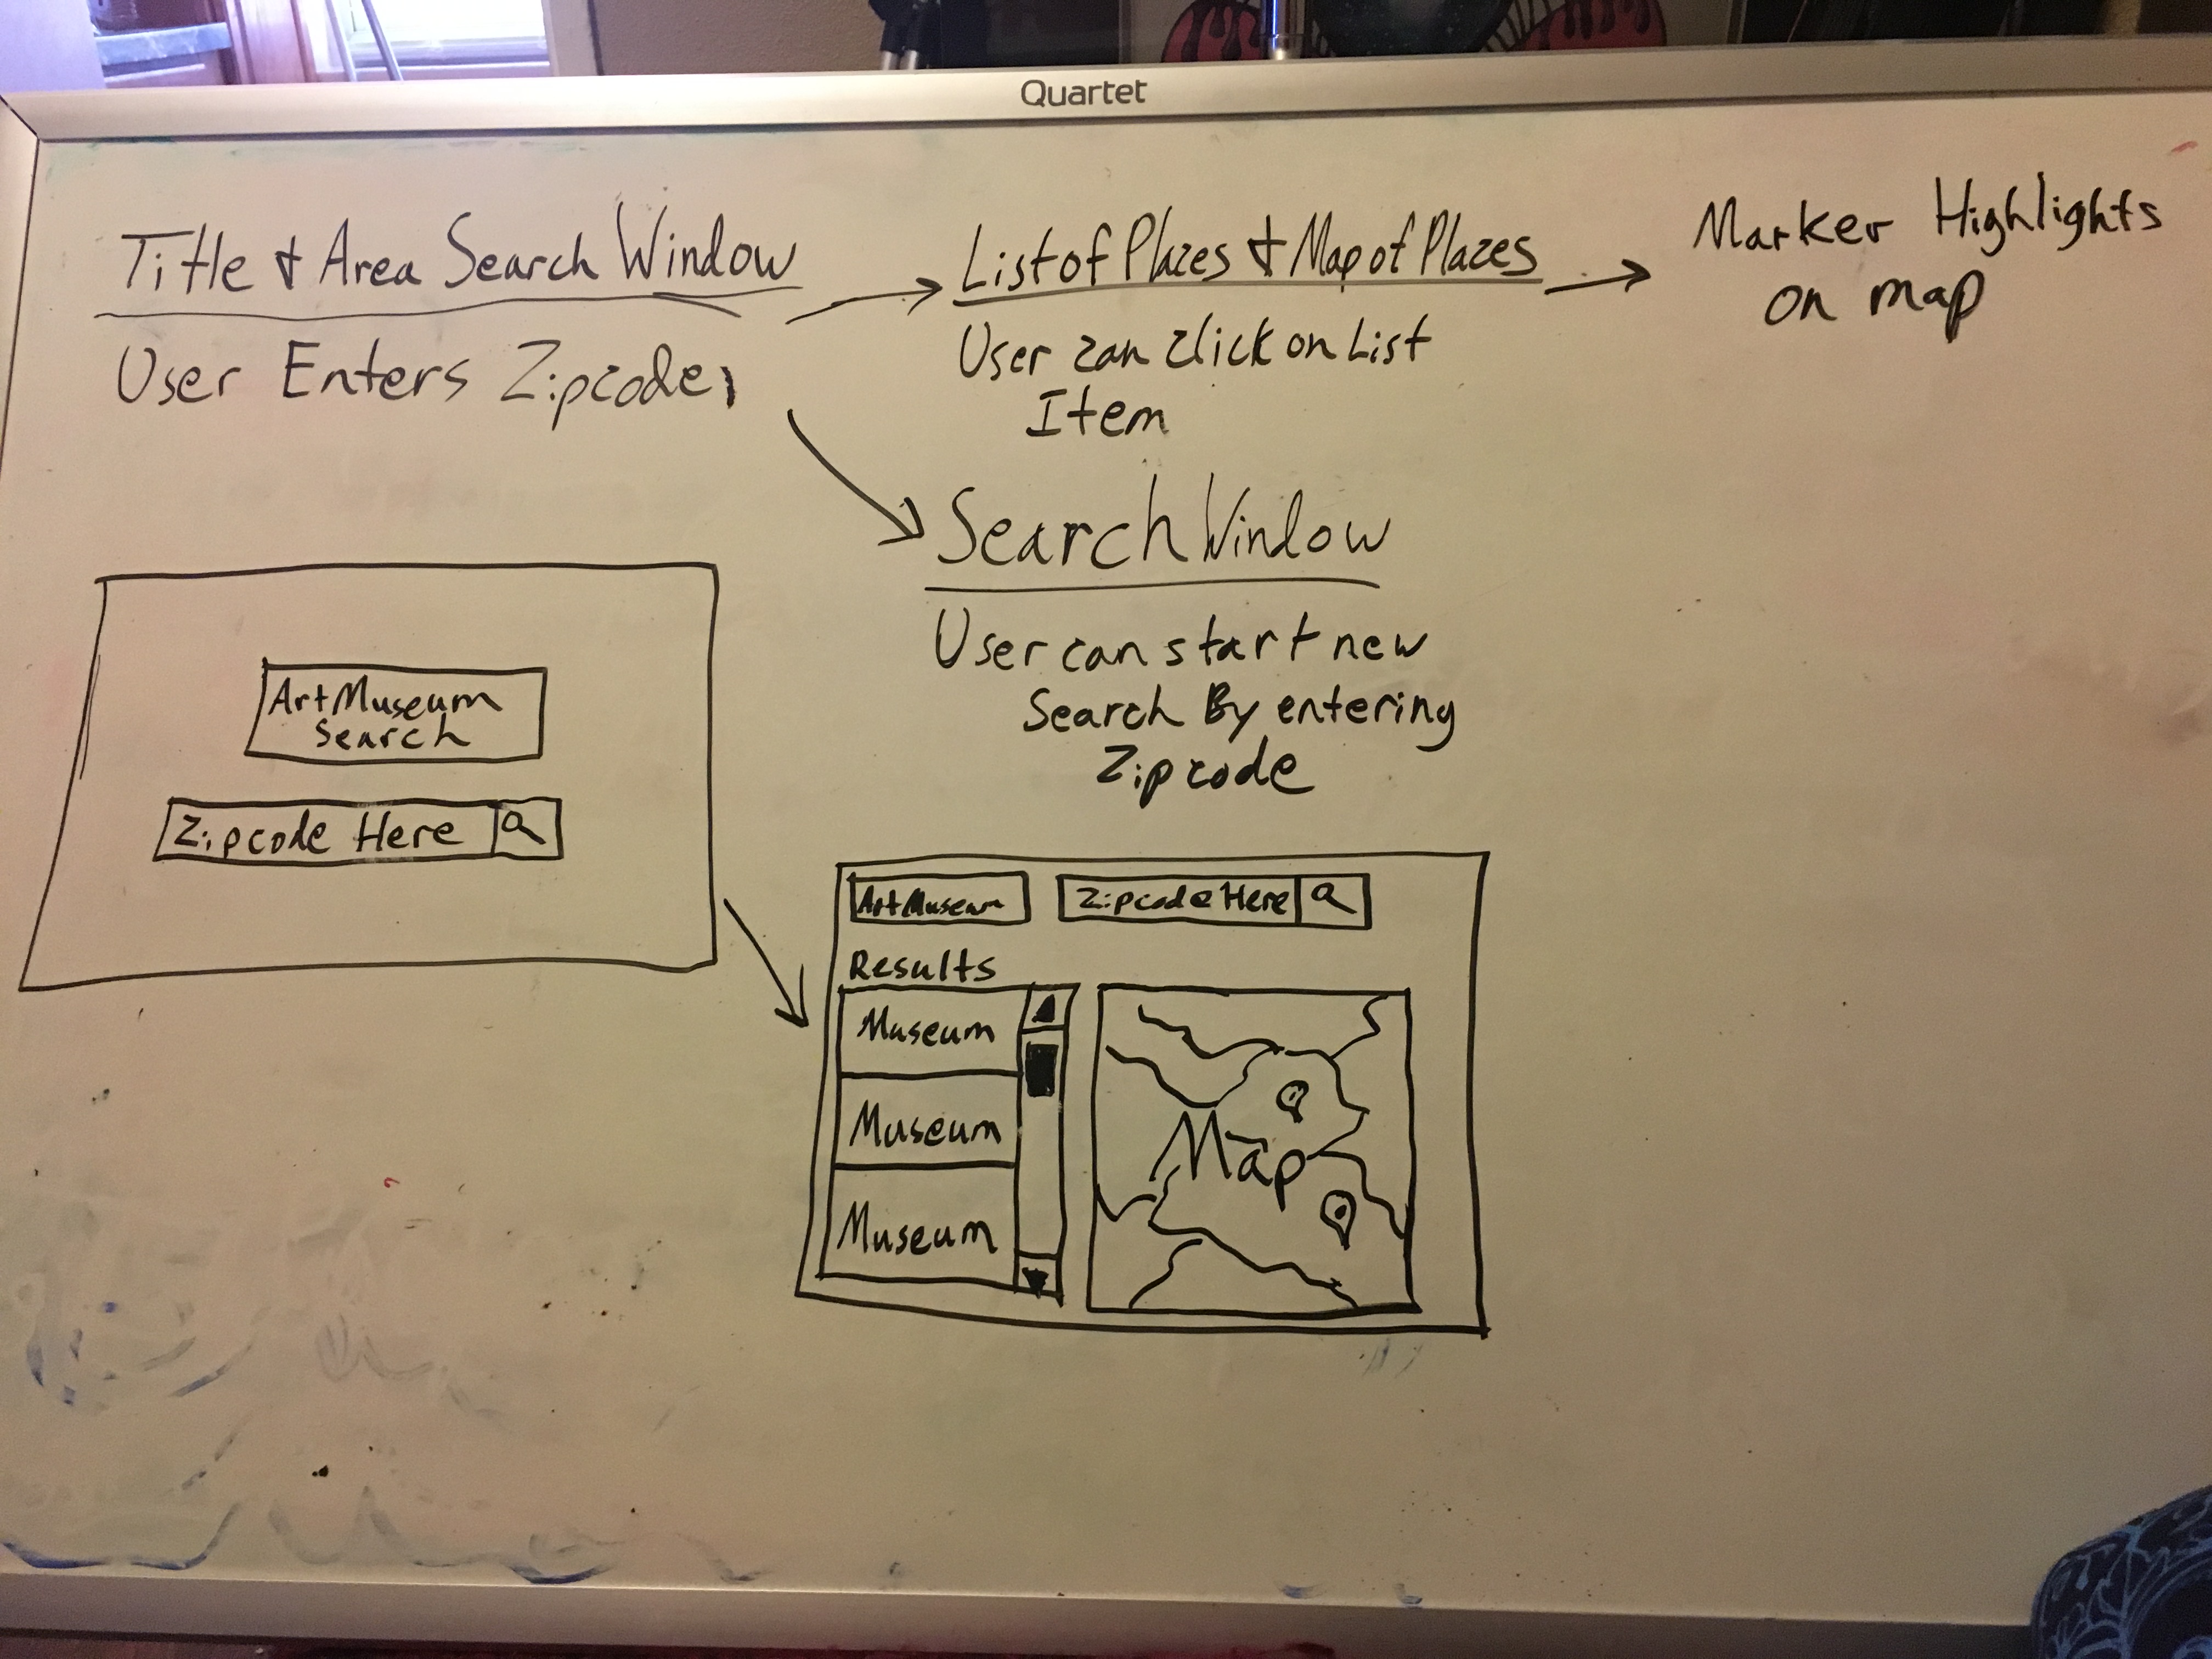 Quartet
Title & Area Search Window
User Enters Zipcode,
List of Places & Map of Places
User can click on List
Item
Marker Highlights
on map
Search Window
User can start new
Search By entering
Zipcode
Art Museum
Search
Zipcode Here
Art Museum
Zipcode Here
Results
Museum
Museum
Museum
Map